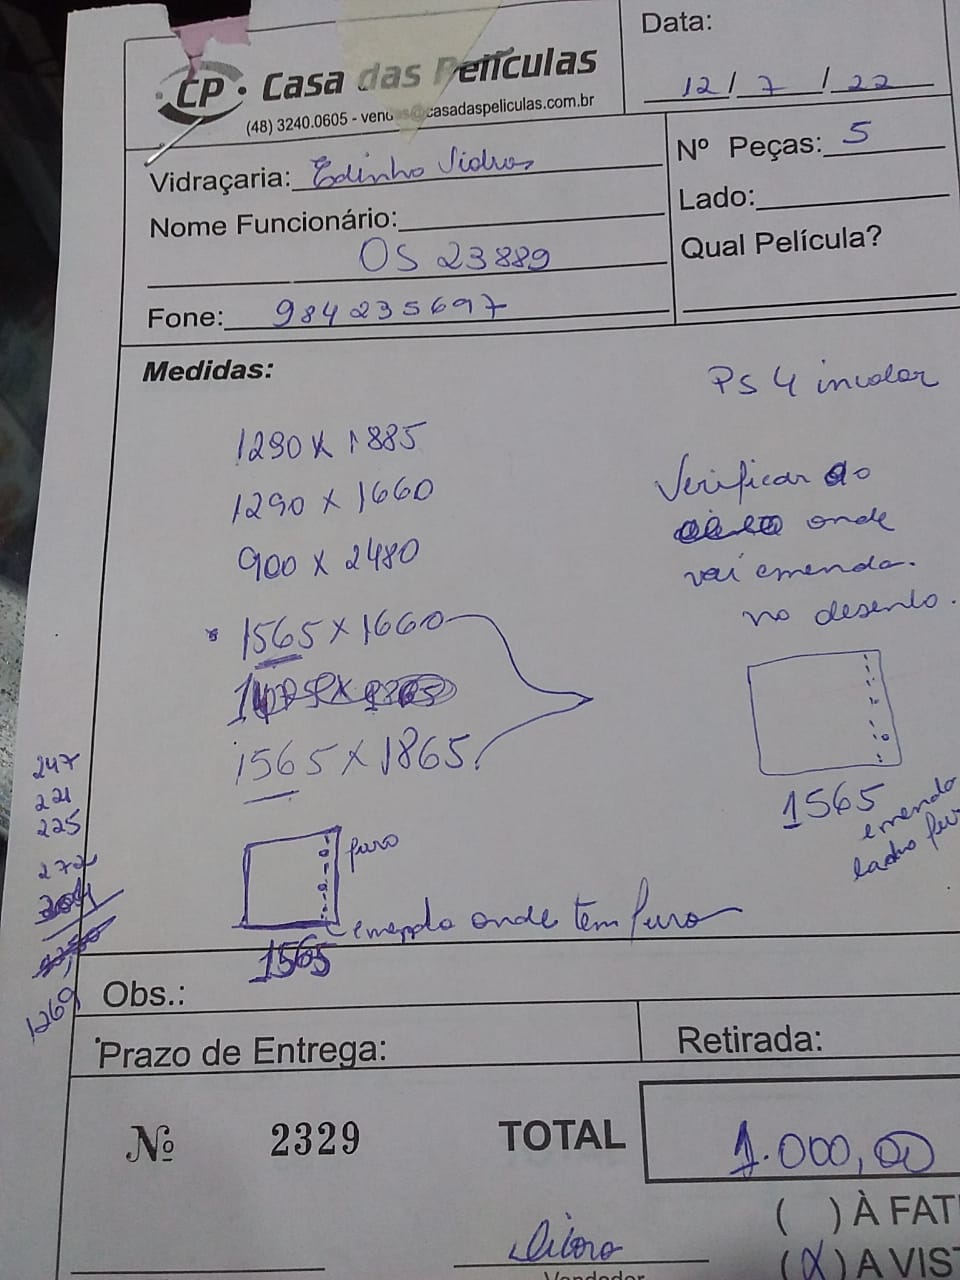 CP • Casa das Películas
(48) 3240.0605 - vendas@casadaspeliculas.com.br
Data:
12/7/22
Vidraçaria: Edinho Vidros
Nº Peças: 5
Nome Funcionário:
Lado:
OS 23889
Qual Película?
Fone: 984235697
Medidas:
PS 4 incolor
1290 x 1885
1290 x 1660
900 x 2480
1565 x 1660
1565 x 1865
Verificar do
onde
vai emenda.
no desenho.
1565
emenda
lado
furo
emenda onde tem furo
1565
247
221
225
272
1269
Obs.:
Prazo de Entrega:
Retirada:
Nº 2329
TOTAL
1.000,00
( ) À FAT
(X) A VIS
Vendedor